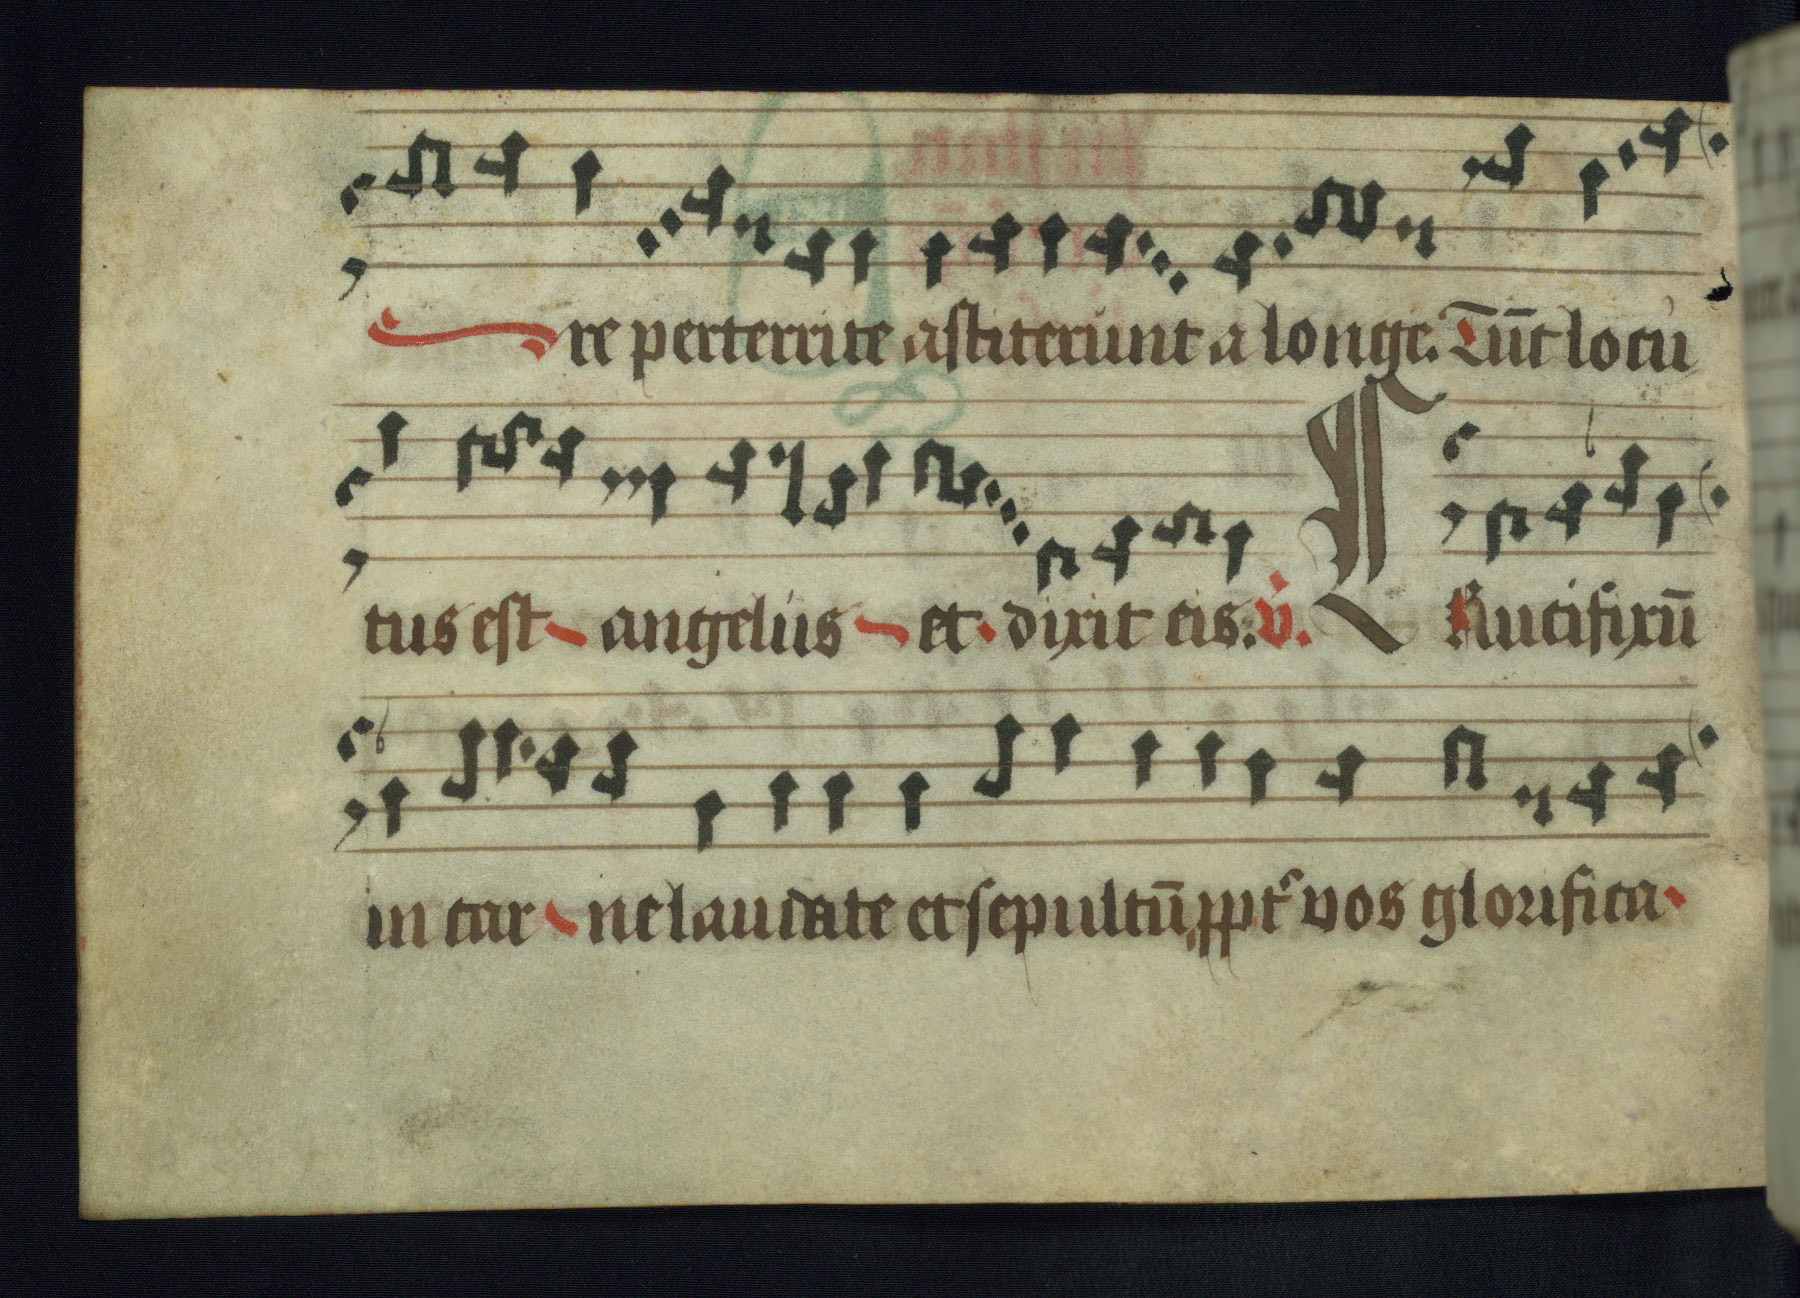 re perterrite astiterunt a longe. Tūc locu
tus est angelus et dixit eis: v̄.
C Rucifixū
in carne laudate et sepultū ꝓpt vos glorifica